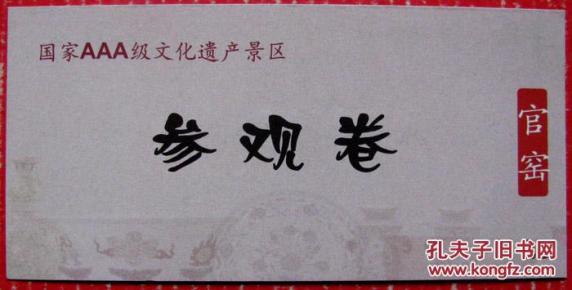 国家AAA级文化遗产景区
参观卷
官窑
孔夫子旧书网
www.kongfz.com